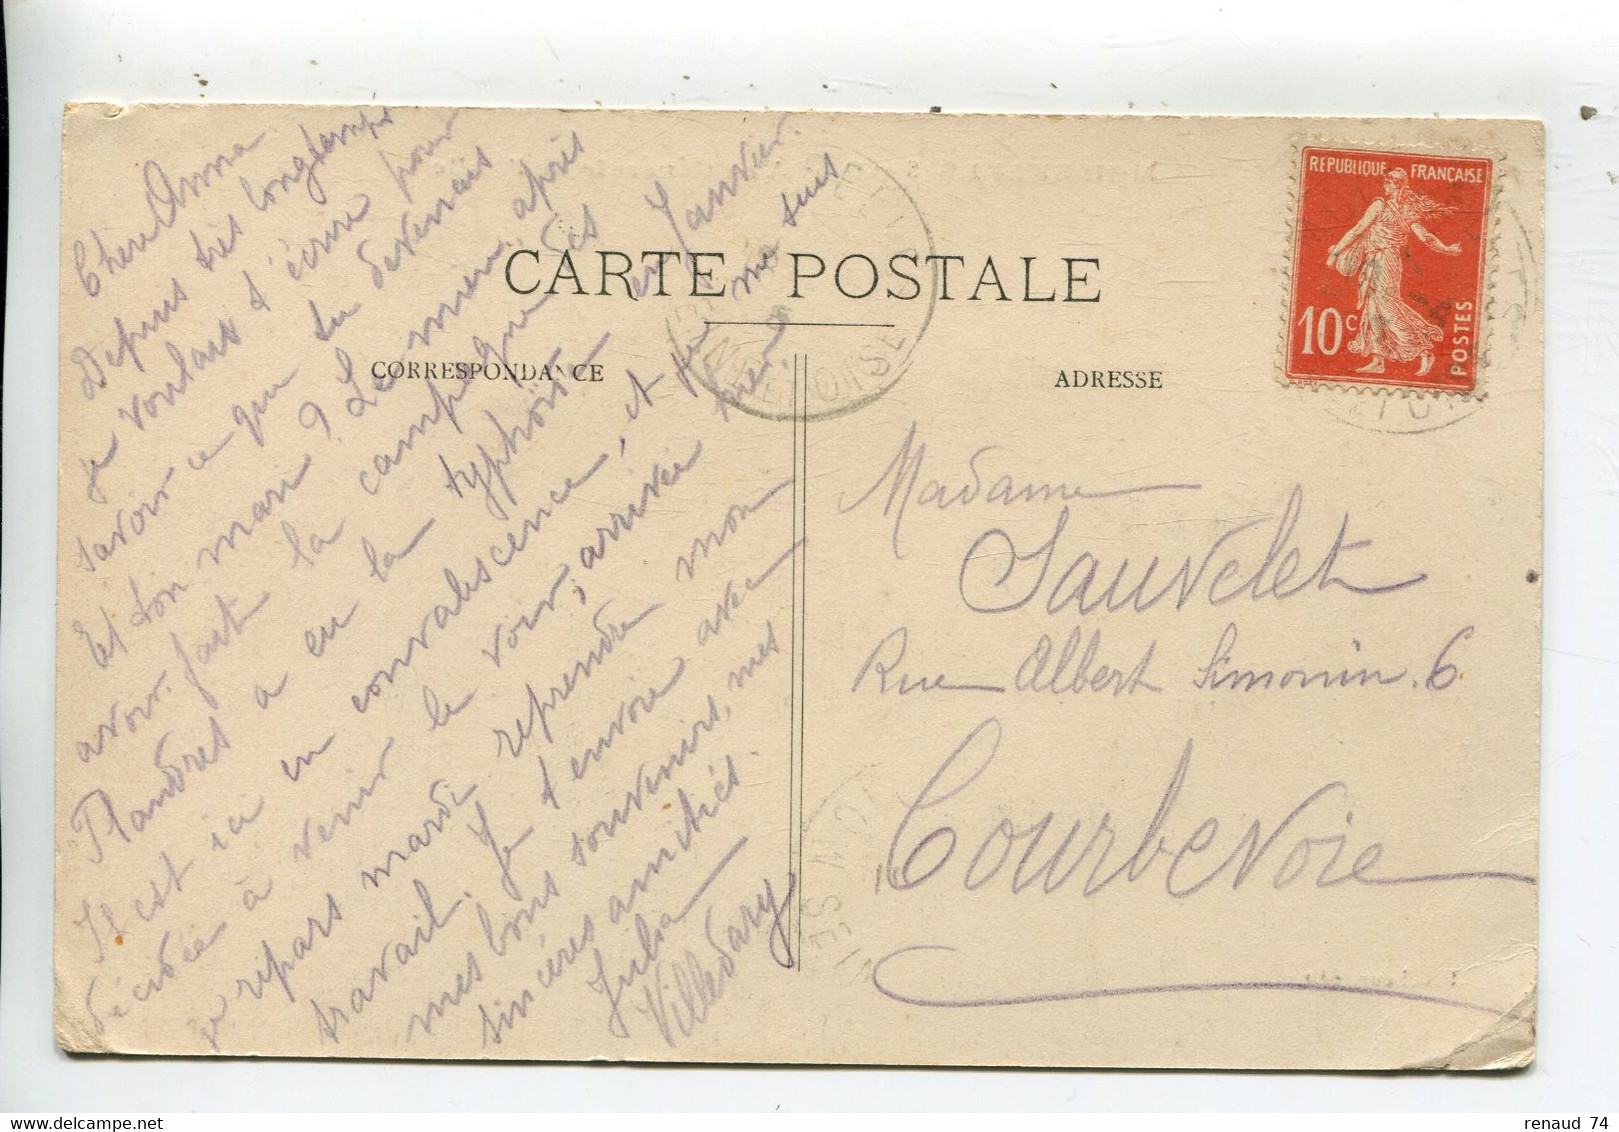 CARTE POSTALE
CORRESPONDANCE
ADRESSE
REPUBLIQUE FRANÇAISE
10c
POSTES
Chère Anna
Depuis très longtemps
je voulais t'écrire pour
savoir ce que tu devenais
Et ton mari ? Le mien, après
avoir fait la campagne des
Flandres a eu la typhoïde en Janvier.
Il est ici en convalescence, et je me suis
décidée à venir le voir, arrivée hier
je repars mardi reprendre mon
travail. Je t'envoie avec
mes bons souvenirs, mes
sincères amitiés.
Julia
Villedary
Madame
Sauvelet
Rue Albert Simonin. 6
Courbevoie
renaud 74